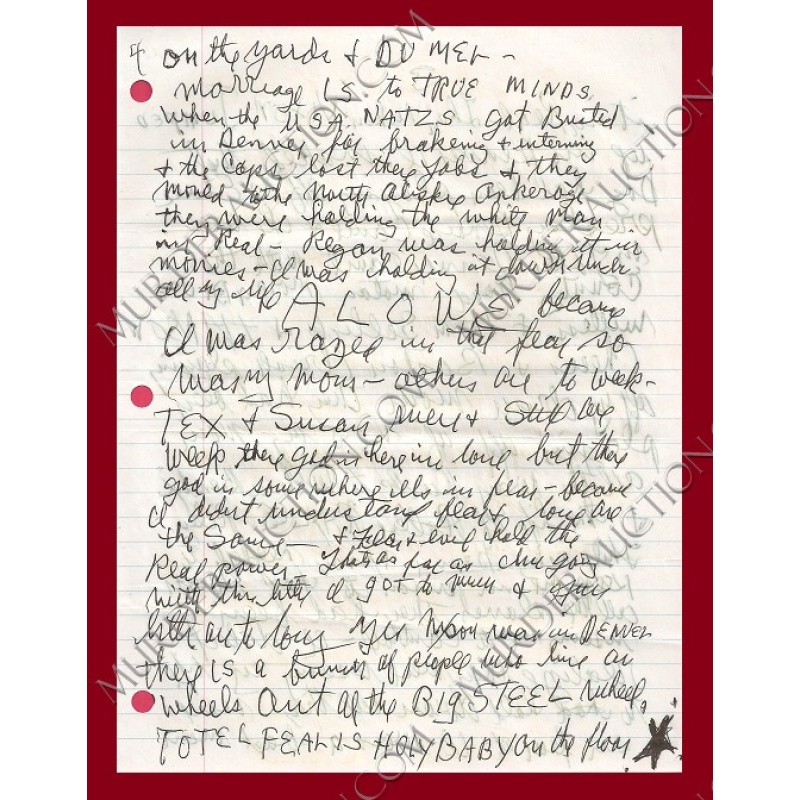 4 on the yards & DU MEL -
marriage IS to TRUE MINDS
When the USA NATZS got Busted
in Denver for brakeing & intering
& the Cops lost there Jobs & they
moved to the North
they were holding the white man
in Real - Regan was holding it in
movies - I was holding it down under
all my life A L O W E became
I was raized in that fear so
was my mom - others are to week -
TEX & Susan were are
weeks there god is here in love but there
god is somewhere els in fear - became
I didn't understand fear & love are
the Same - & Fear & evil hold the
Real power - Thats as far as going
with this little I got to much &
little are to long Yer Mom was in DENVER
there IS a bunch of people who live on
wheels Out of the BIG STEEL wheel,
TOTEL FEAL IS HOLY BABY on the floor
MURDERAUCTION.COM